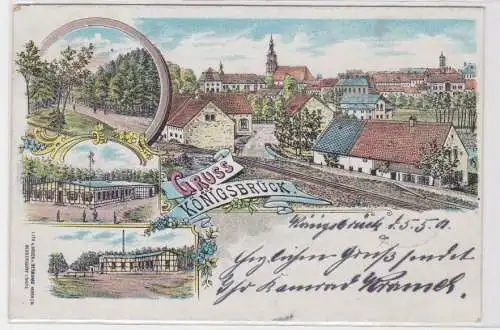 GRUSS
KÖNIGSBRÜCK.
Königsbrück d. 5.5.
Herzlichen Gruß sendet
Kamrad Kramer